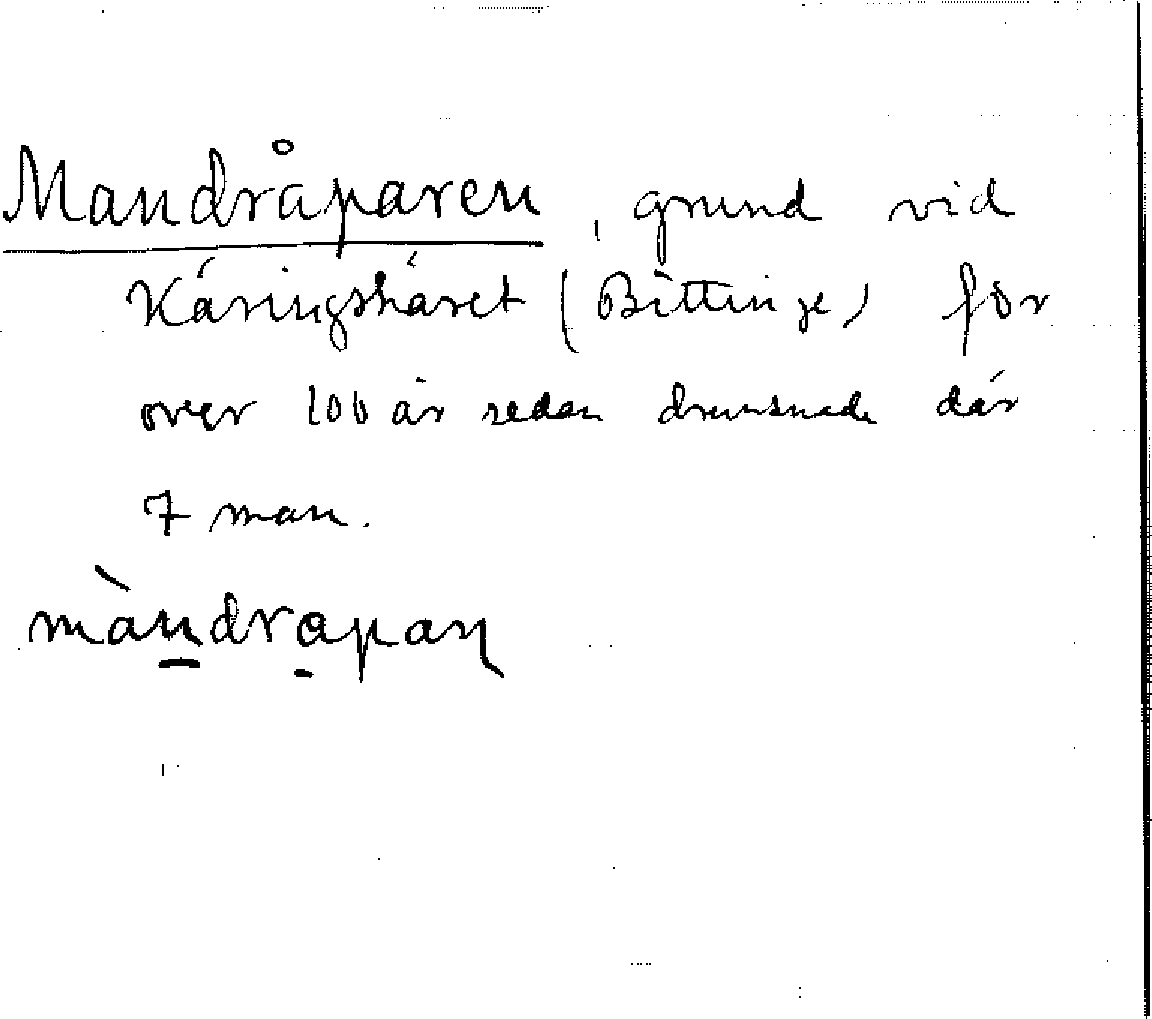 Mandråparen, grund vid
Käringskäret (Bittinge) för
över 100 år sedan drunknade där
7 man.
màn̲dro̱paɳ